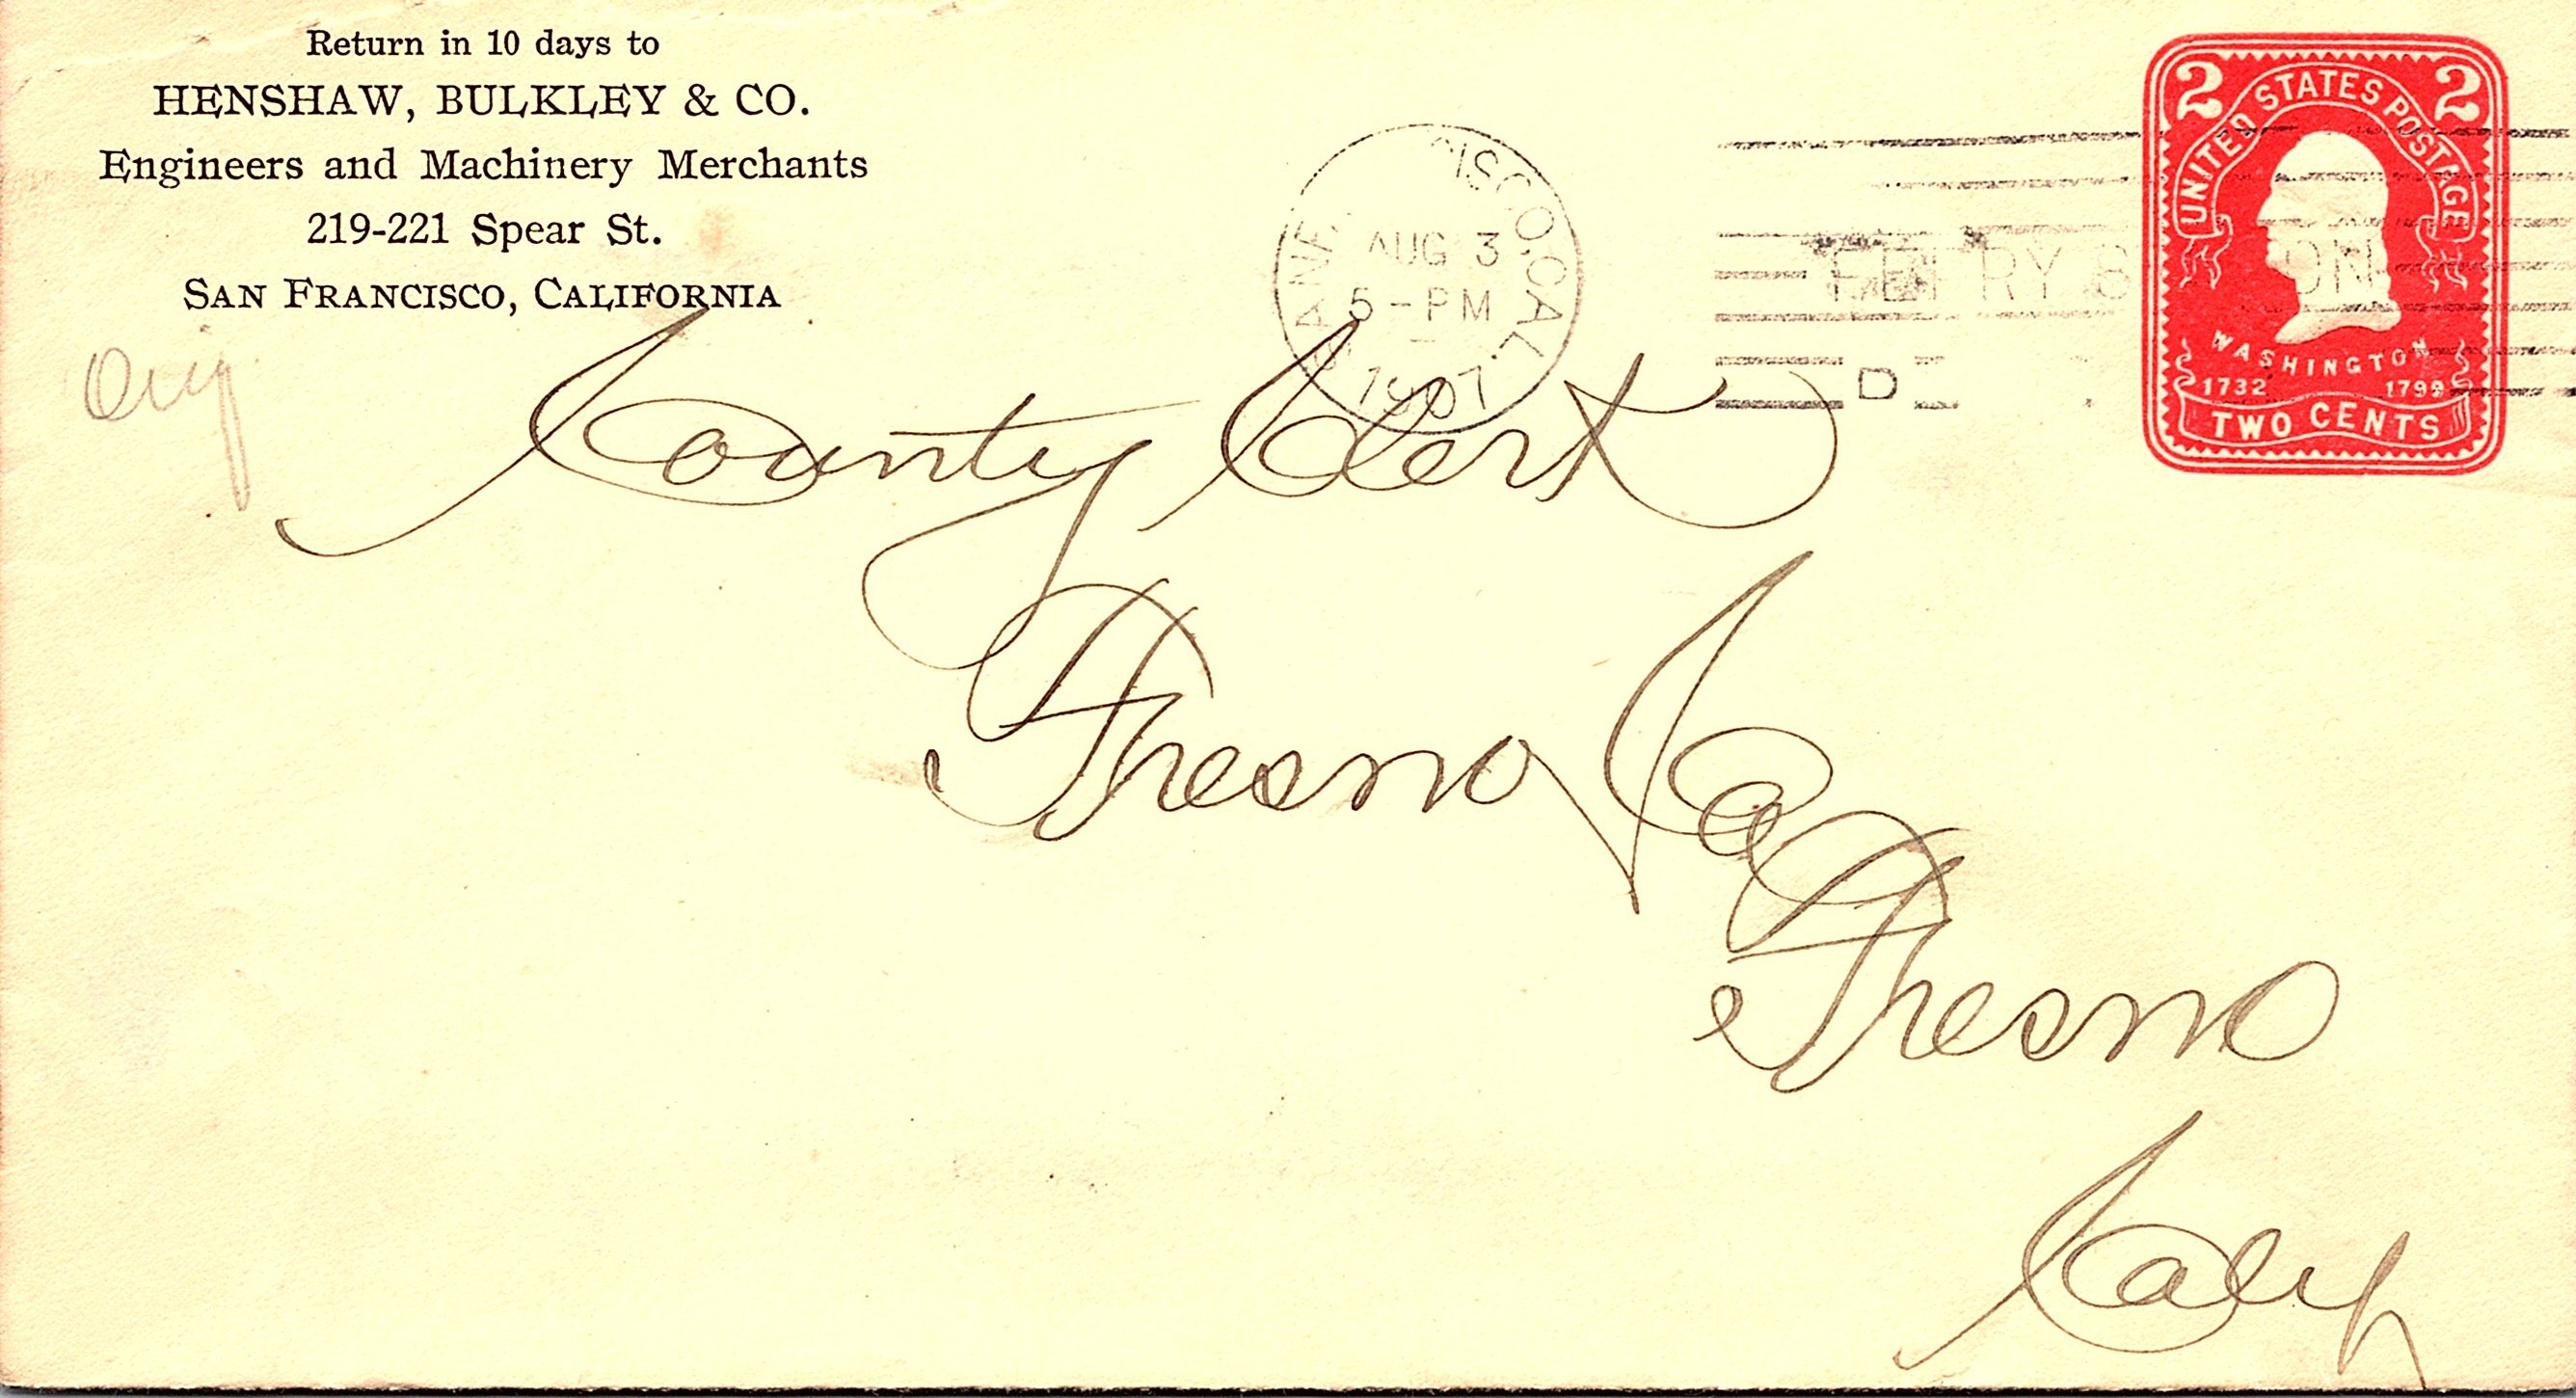 Return in 10 days to
HENSHAW, BULKLEY & CO.
Engineers and Machinery Merchants
219-221 Spear St.
SAN FRANCISCO, CALIFORNIA
2 2
UNITED STATES POSTAGE
WASHINGTON
1732 1799
TWO CENTS
AUG 3
5-PM
1907
FERRY S ON
D
County Clerk
Fresno Co
Fresno
Calif